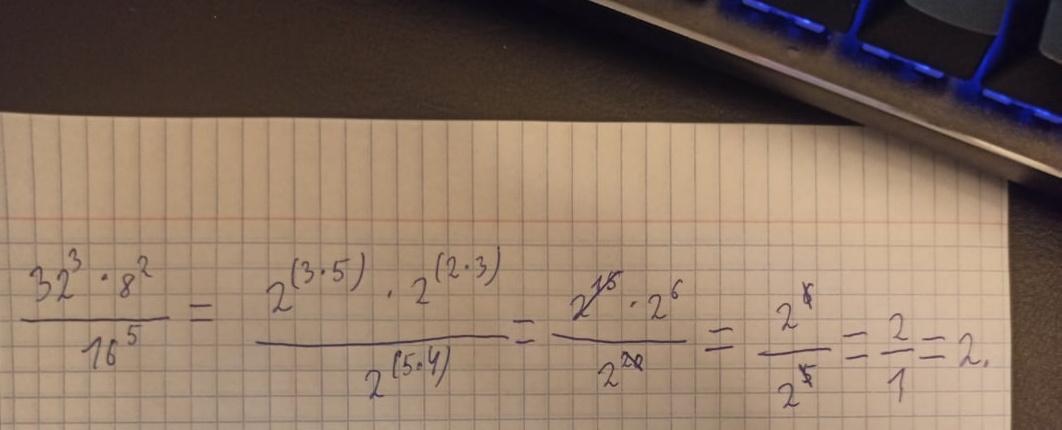 32³·8²/16⁵ = 2^(3·5) · 2^(2·3)/2^(5·4) = 2^15 · 2^6/2^20 = 2^6/2^5 = 2/1 = 2.